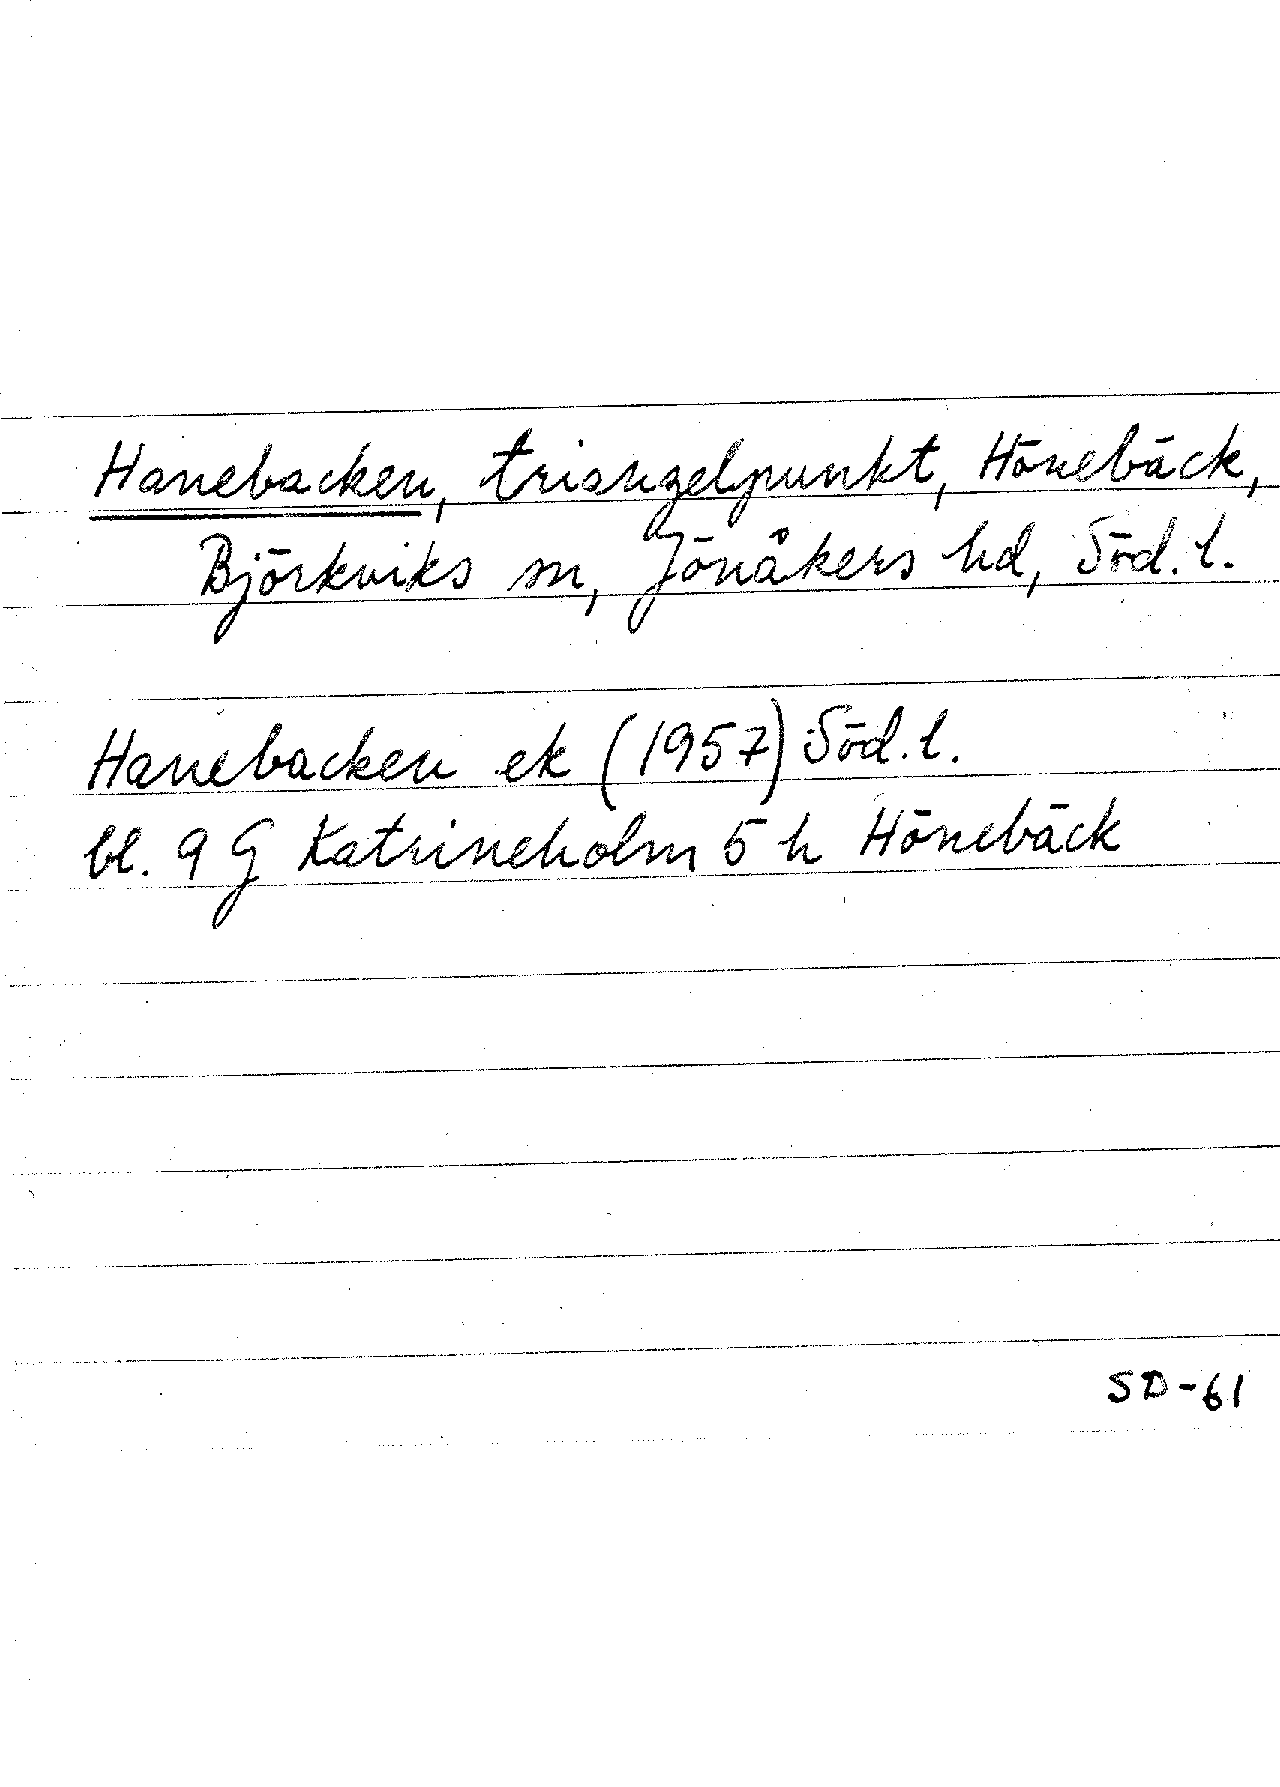 Hanebacken, triangelpunkt, Hönebäck,
Björkviks sn, Jönåkers hd, Söd. l.
Hanebacken ek (1957) Söd. l.
bl. 9 G Katrineholm 5 h Hönebäck
SD-61